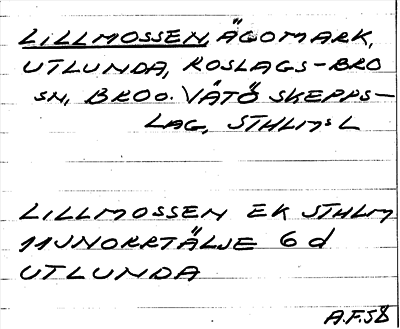 LILLMOSSEN, ÄGOMARK,
UTLUNDA, ROSLAGS-BRO
SN, BRO o. VÄTÖ SKEPPS-
LAG, STHLMS L
LILLMOSSEN EK STHLM
11J NORRTÄLJE 6 d
UTLUNDA
A.F.58